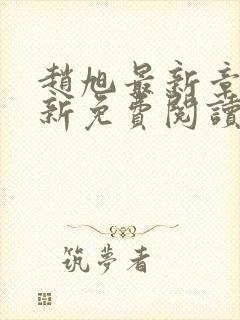 趙旭最新章
新免費閱讀
筑夢者